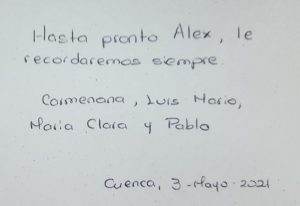 Hasta pronto Alex, le
recordaremos siempre.
Carmenana, Luis Mario,
Maria Clara y Pablo
Cuenca, 3-Mayo-2021